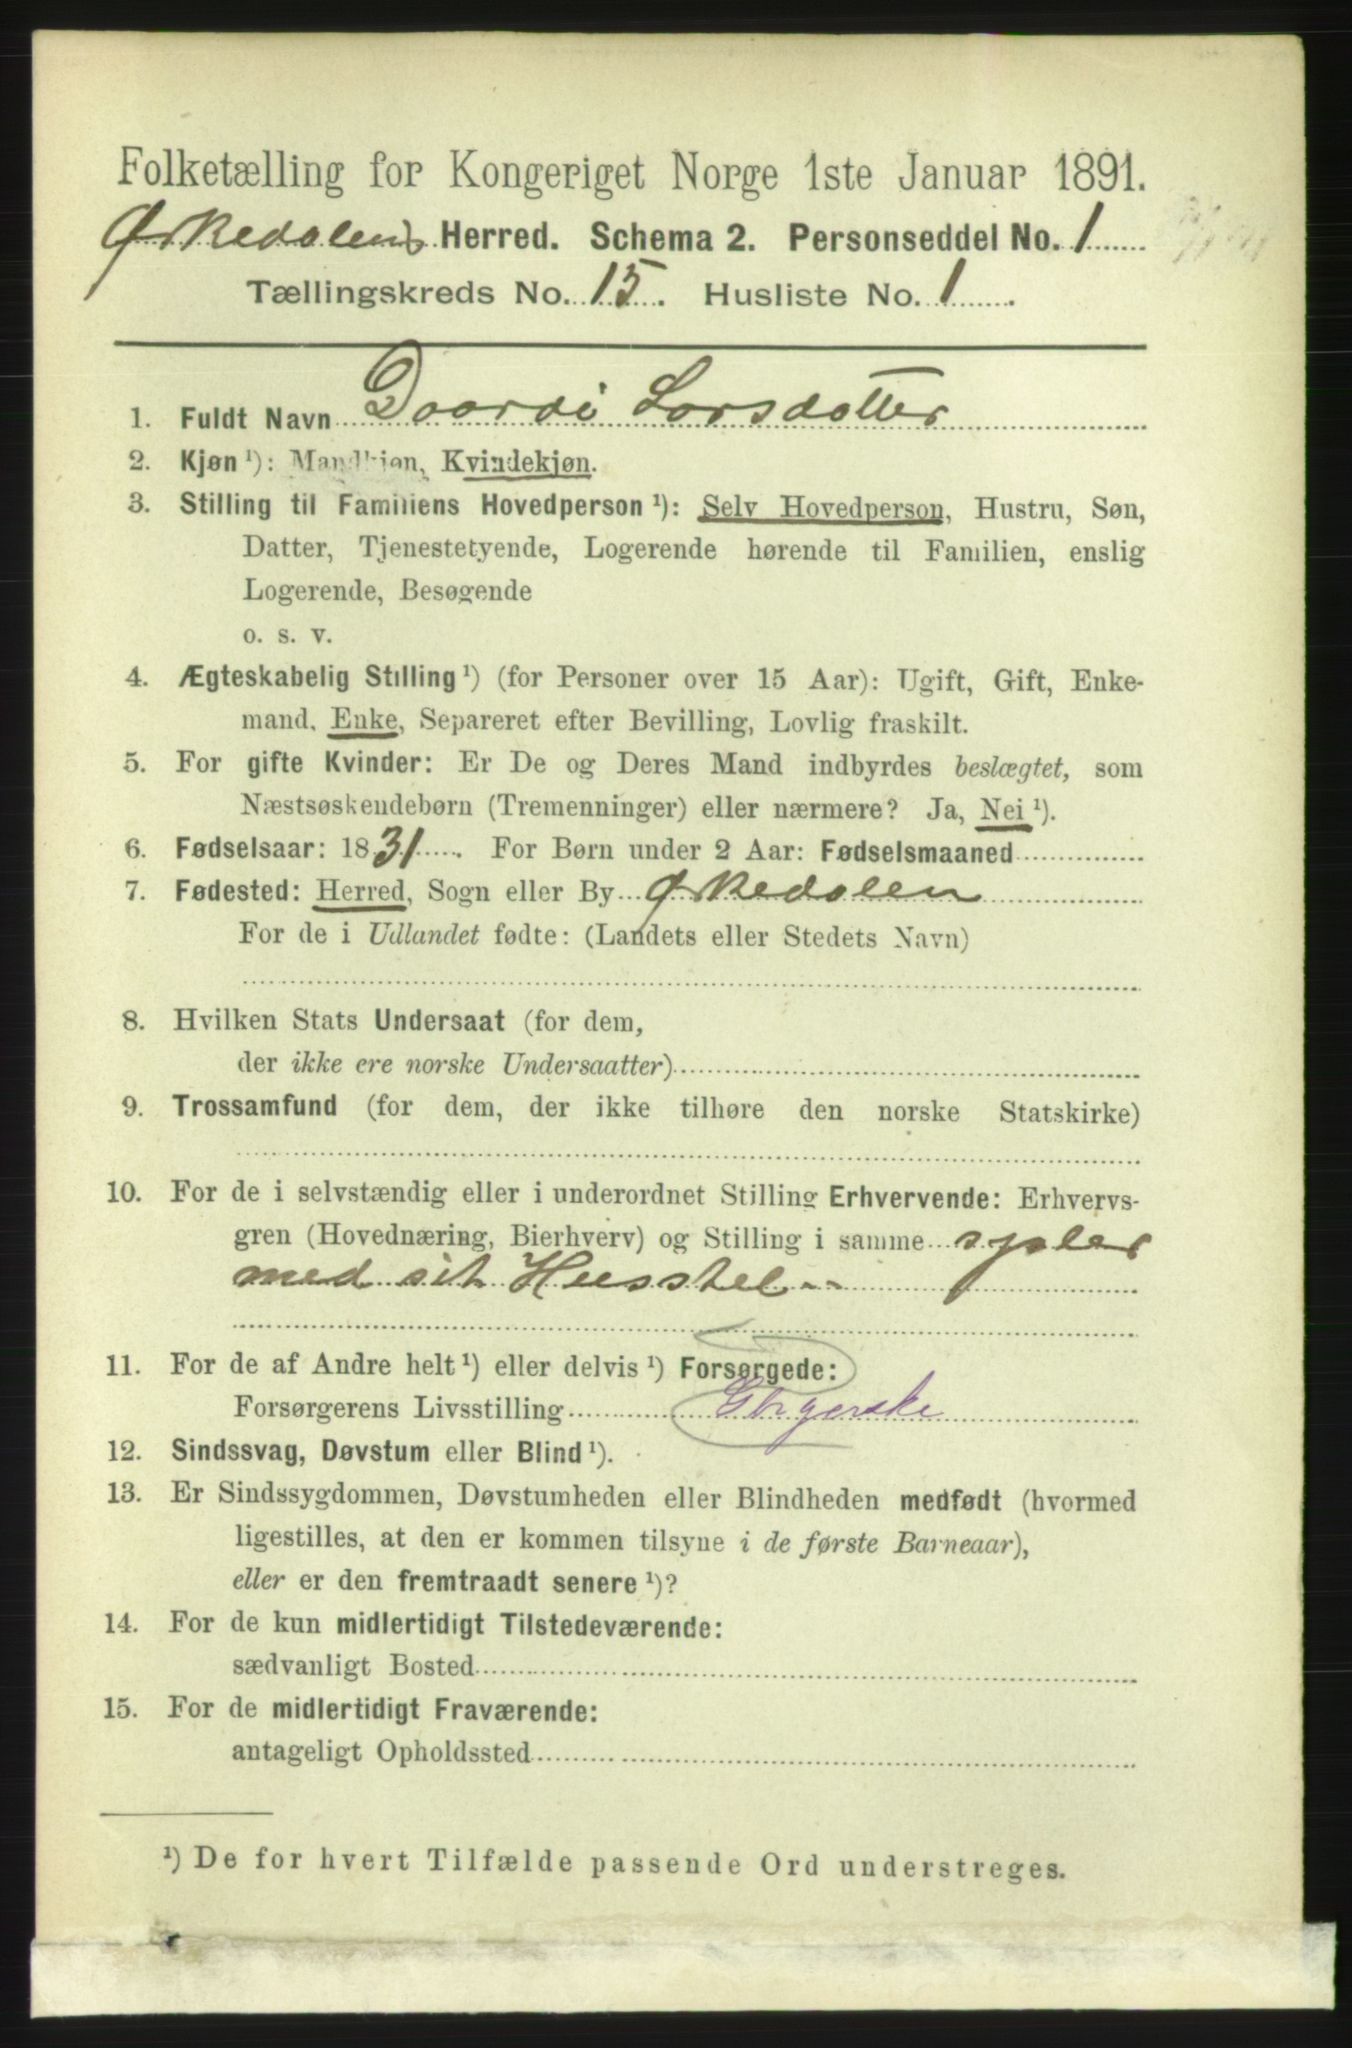 Folketælling for Kongeriget Norge 1ste Januar 1891.
Ørkedalens Herred. Schema 2. Personseddel No. 1
Tællingskreds No. 15. Husliste No. 1.
1. Fuldt Navn Doardi Larsdatter
2. Kjøn ¹): Mandkjøn, Kvindekjøn.
3. Stilling til Familiens Hovedperson ¹): Selv Hovedperson, Hustru, Søn,
Datter, Tjenestetyende, Logerende hørende til Familien, enslig
Logerende, Besøgende
o. s. v.
4. Ægteskabelig Stilling ¹) (for Personer over 15 Aar): Ugift, Gift, Enke-
mand, Enke, Separeret efter Bevilling, Lovlig fraskilt.
5. For gifte Kvinder: Er De og Deres Mand indbyrdes beslægtet, som
Næstsøskendebørn (Tremenninger) eller nærmere? Ja, Nei ¹).
6. Fødselsaar: 1831. For Børn under 2 Aar: Fødselsmaaned
7. Fødested: Herred, Sogn eller By Ørkedalen
For de i Udlandet fødte: (Landets eller Stedets Navn)
8. Hvilken Stats Undersaat (for dem,
der ikke ere norske Undersaatter)
9. Trossamfund (for dem, der ikke tilhøre den norske Statskirke)
10. For de i selvstændig eller i underordnet Stilling Erhvervende: Erhvervs-
gren (Hovednæring, Bierhverv) og Stilling i samme syslar
med sit Husstel
11. For de af Andre helt ¹) eller delvis ¹) Forsørgede:
Forsørgerens Livsstilling
12. Sindssvag, Døvstum eller Blind ¹).
13. Er Sindssygdommen, Døvstumheden eller Blindheden medfødt (hvormed
ligestilles, at den er kommen tilsyne i de første Barneaar),
eller er den fremtraadt senere ¹)?
14. For de kun midlertidigt Tilstedeværende:
sædvanligt Bosted
15. For de midlertidigt Fraværende:
antageligt Opholdssted
¹) De for hvert Tilfælde passende Ord understreges.